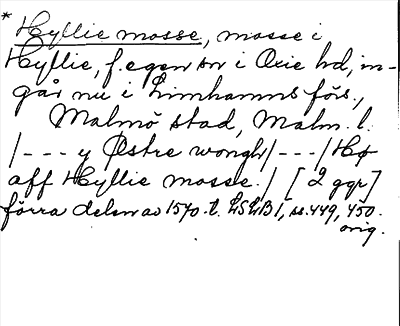 * Hyllie mosse, mosse i
Hyllie, f. egen sn i Oxie hd, in-
går nu i Limhamns förs.,
Malmö stad, Malm. l.
|--- y Østre wongh|---| Hø
aff Hyllie mosse. | [2 ggr]
förra delen av 1570-t. LSLB 1, ss. 449, 450.
orig.